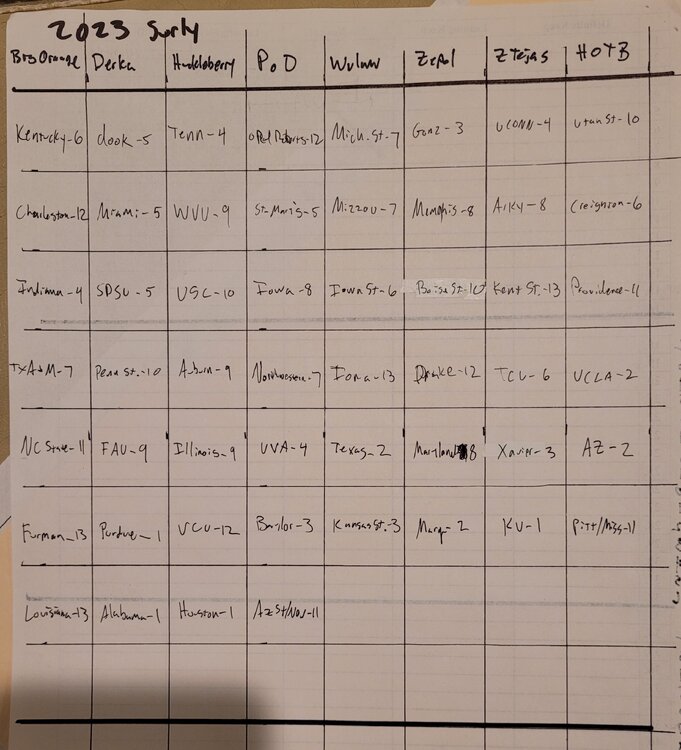 2023 Surly
BigOrange Derka Huckleberry PoD Wulaw Zepol ZTejas HOTB
Kentucky-6 dook-5 Tenn-4 Oral Roberts-12 Mich. St-7 Gonz-3 UCONN-4 Utah St-10
Charleston-12 Miami-5 WVU-9 St. Mary's-5 Mizzou-7 Memphis-8 Arky-8 Creighton-6
Indiana-4 SDSU-5 USC-10 Iowa-8 Iowa St-6 Boise St-10 Kent St.-13 Providence-11
TxA&M-7 Penn St.-10 Auburn-9 Northwestern-7 Iona-13 Drake-12 TCU-6 UCLA-2
NC State-11 FAU-9 Illinois-9 UVA-4 Texas-2 Maryland 8 Xavier-3 AZ-2
Furman-13 Purdue-1 VCU-12 Baylor-3 Kansas St.-3 Marq-2 KU-1 Pitt/Miss-11
Louisiana-13 Alabama-1 Houston-1 Az St/Nev-11